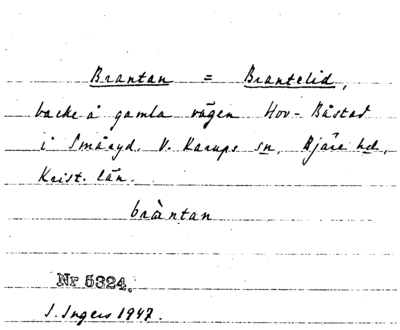 Brantan = Brantelid,
backe å gamla vägen Hov-Båstad
i Småryd, V. Karups sn, Bjäre hd,
Krist. län.
bràntan
Nr 5324.
I. Ingers 1947.